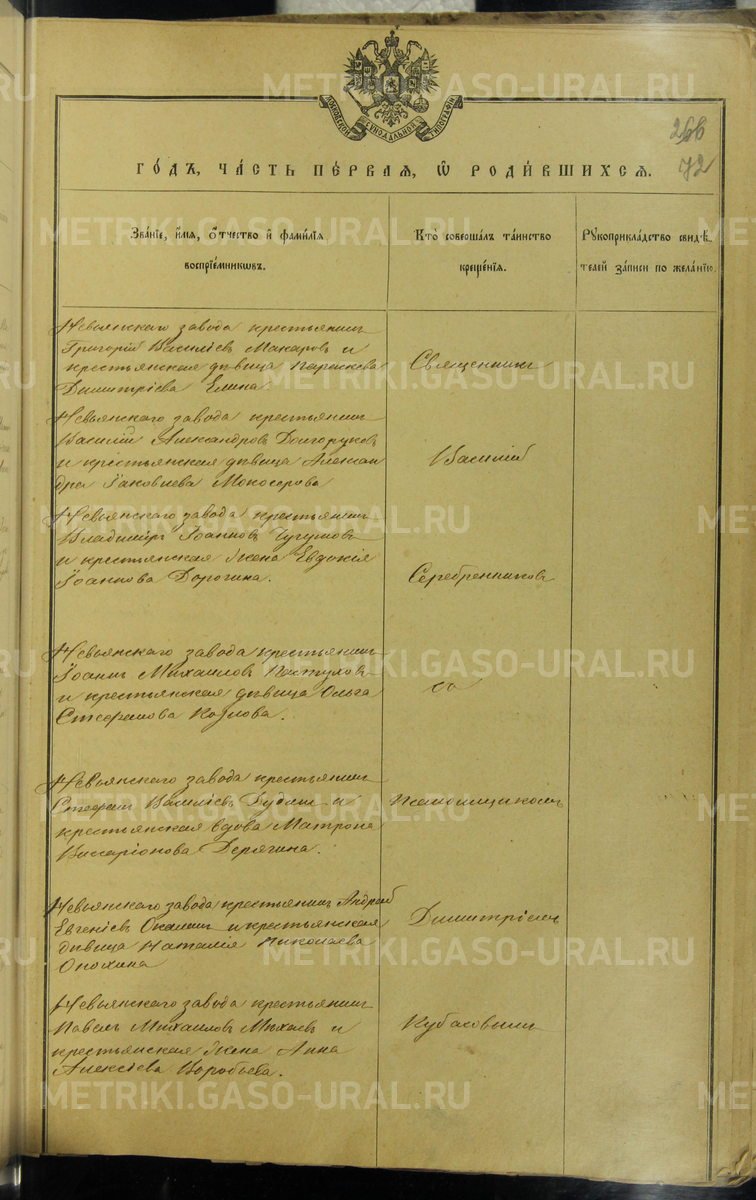 МОСКОВСКОЙ СѴНОДАЛЬНОЙ ТИПОГРАФІИ
266
72
ГО́ДЪ, ЧА́СТЬ ПЕ́РВАѦ, Ѡ҆ РОДИ́ВШИХСѦ.
Зва́нїе, и҆́мѧ, ѻ҆́тчество и҆ фами́лїѧ
воспрїе́мникѡвъ.
Кто̀ соверша́лъ та́инство
креще́нїѧ.
Рꙋкоприкла́дство свидѣ́-
телей за́писи по жела́нїю.
Невьянскаго завода крестьянинъ
Григорій Василіевъ Макаровъ и
крестьянская дѣвица Параскева
Димитріева Елина.
Священникъ
Невьянскаго завода крестьянинъ
Василій Александровъ Долгоруковъ
и крестьянская дѣвица Алексан
дра Іаковлева Мокосарова
Василій
Невьянскаго завода крестьянинъ
Владиміръ Іоанновъ Чугуновъ
и крестьянская жена Евдокія
Іоаннова Дорогина.
Серебренниковъ
Невьянскаго завода крестьянинъ
Іоаннъ Михаиловъ Пастуховъ
и крестьянская дѣвица Ольга
Стефанова Козлова.
съ
Невьянскаго завода крестьянинъ
Стефанъ Василіевъ Дудинъ и
крестьянская вдова Матрона
Виссаріонова Дерягина.
Псаломщикомъ
Невьянскаго завода крестьянинъ Андрей
Евгеніевъ и крестьянская
дѣвица Наталія Николаева
Опохина
Димитріемъ
Невьянскаго завода крестьянинъ
Павелъ Михаиловъ Михаевъ и
крестьянская жена Анна
Алексіева Воробьева.
Кубасовымъ
METRIKI.GASO-URAL.RU